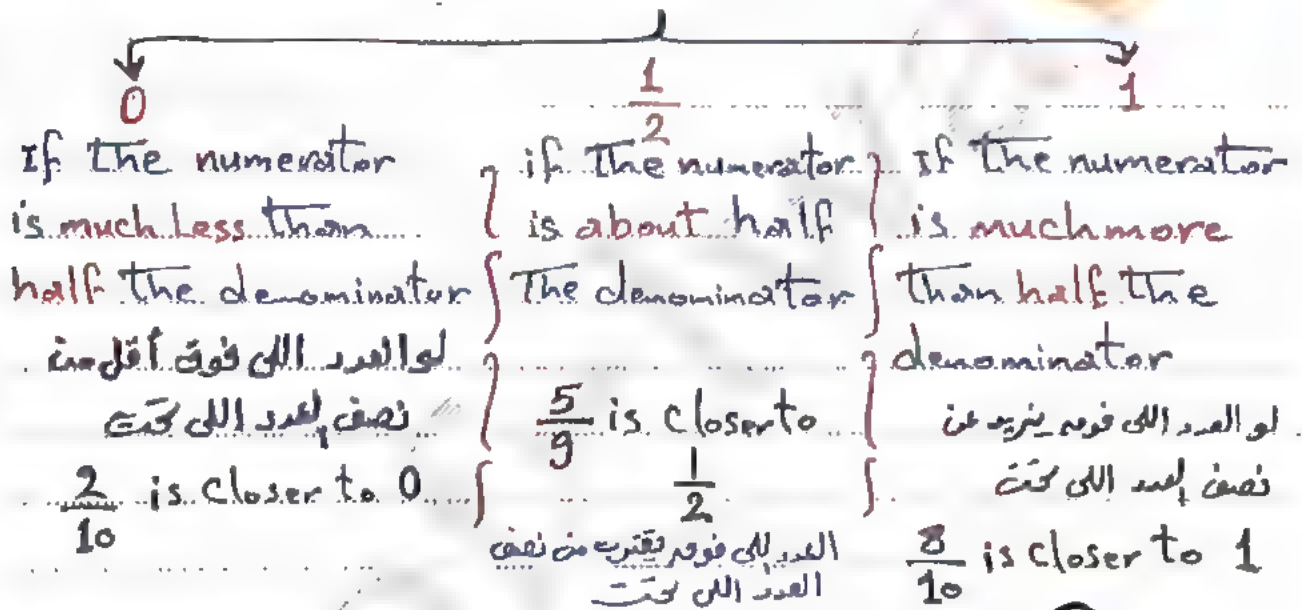 0
If the numerator
is much Less than
half the denominator
لو العدد اللى فوق أقل من
نصف العدد اللى تحت
2/10 is closer to 0
1/2
if The numerator
is about half
The denominator
5/9 is closer to
1/2
العدد اللى فوق يقترب من نصف
العدد اللى تحت
1
If the numerator
is much more
than half the
denominator
لو العدد اللى فوق يزيد عن
نصف العدد اللى تحت
8/10 is closer to 1